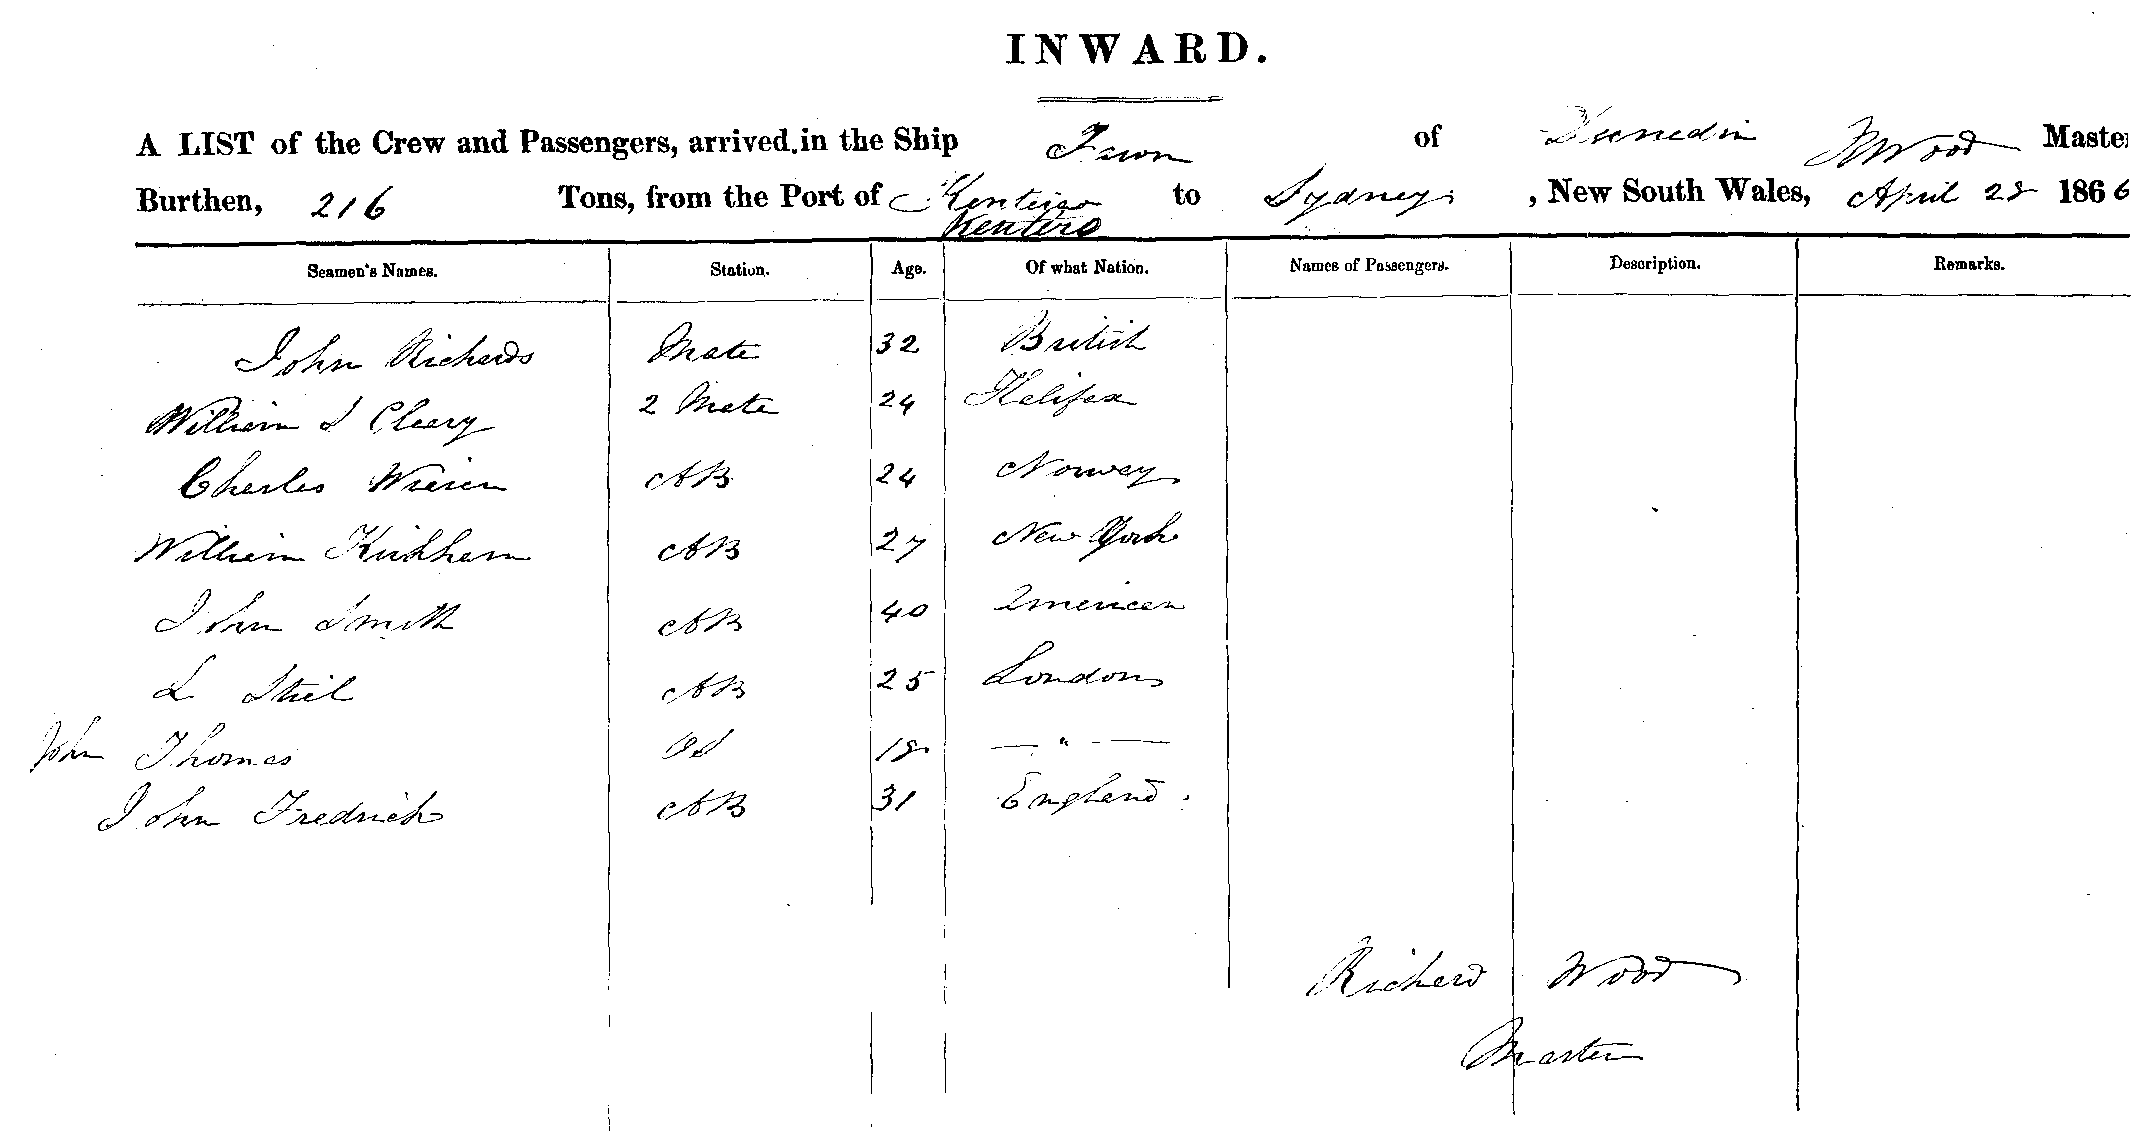 INWARD.
A LIST of the Crew and Passengers, arrived in the Ship Fawn of Dunedin R Wood Master
Burthen, 216 Tons, from the Port of to Sydney, New South Wales, April 28 1866
Kentero
Seamen's Names. Station. Age. Of what Nation. Names of Passengers. Description. Remarks.
John Richards Mate 32 British
William J Cleary 2 Mate 24 Halifax
Charles AB 24 Norway
William Kirkham AB 27 New York
John Smith AB 40 American
L AB 25 London
John Thomas OS 18 — " —
John Fredrick AB 31 England.
Richard Wood
Master